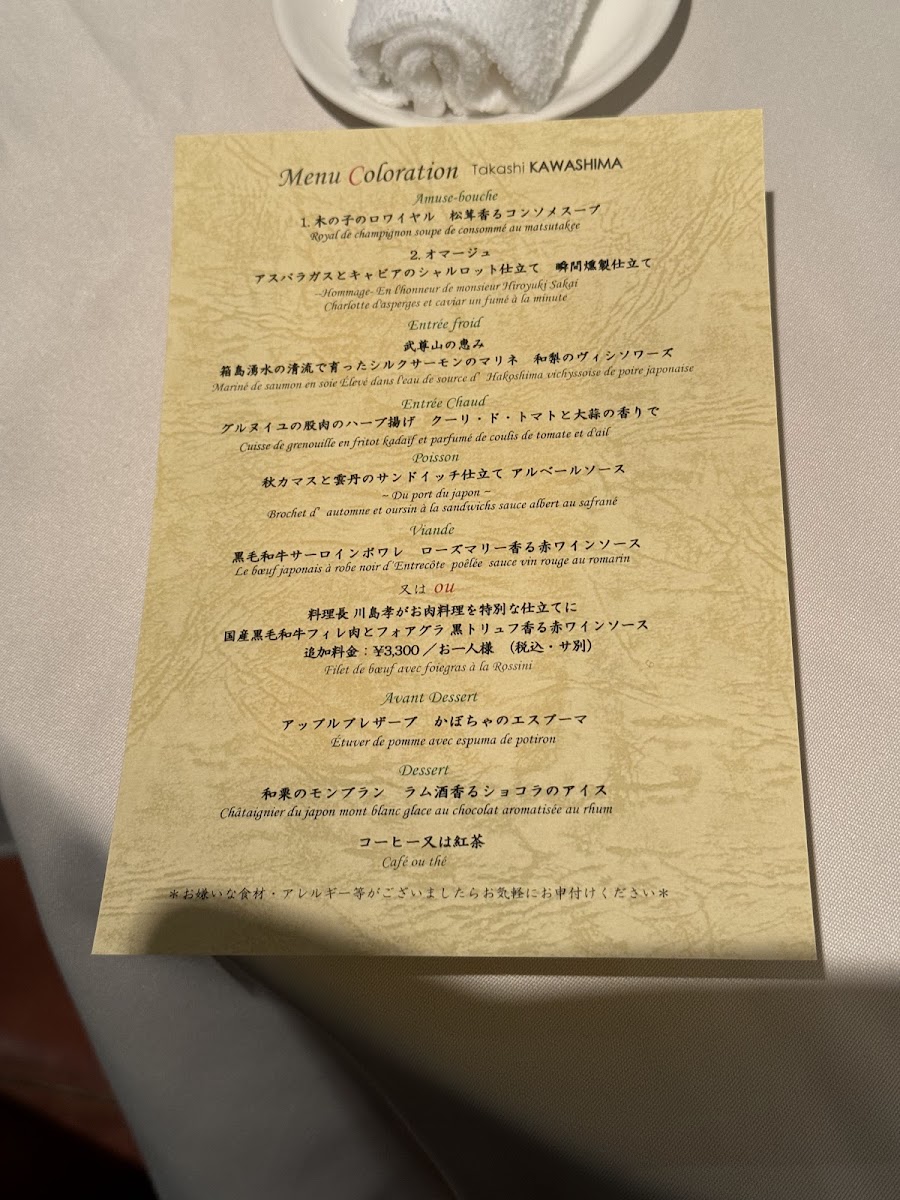 Menu Coloration Takashi KAWASHIMA
Amuse-bouche
1. 木の子のロワイヤル 松茸香るコンソメスープ
Royal de champignon soupe de consommé au matsutakee
2. オマージュ
アスパラガスとキャビアのシャルロット仕立て 瞬間燻製仕立て
~Hommage- En l'honneur de monsieur Hiroyuki Sakai
Charlotte d'asperges et caviar un fumé à la minute
Entrée froid
武尊山の恵み
箱島湧水の清流で育ったシルクサーモンのマリネ 和梨のヴィシソワーズ
Mariné de saumon en soie Élevé dans l'eau de source d' Hakoshima vichyssoise de poire japonaise
Entrée Chaud
グルヌイユの股肉のハーブ揚げ クーリ・ド・トマトと大蒜の香りで
Cuisse de grenouille en fritot kadaif et parfumé de coulis de tomate et d'ail
Poisson
秋カマスと雲丹のサンドイッチ仕立て アルベールソース
~ Du port du japon ~
Brochet d' automne et oursin à la sandwichs sauce albert au safrané
Viande
黒毛和牛サーロインポワレ ローズマリー香る赤ワインソース
Le bœuf japonais à robe noir d'Entrecôte poêlée sauce vin rouge au romarin
又は ou
料理長 川島孝がお肉料理を特別な仕立てに
国産黒毛和牛フィレ肉とフォアグラ 黒トリュフ香る赤ワインソース
追加料金：¥3,300／お一人様 （税込・サ別）
Filet de bœuf avec foiegras à la Rossini
Avant Dessert
アップルプレザーブ かぼちゃのエスプーマ
Étuver de pomme avec espuma de potiron
Dessert
和栗のモンブラン ラム酒香るショコラのアイス
Châtaignier du japon mont blanc glace au chocolat aromatisée au rhum
コーヒー又は紅茶
Café ou thé
＊お嫌いな食材・アレルギー等がございましたらお気軽にお申付けください＊